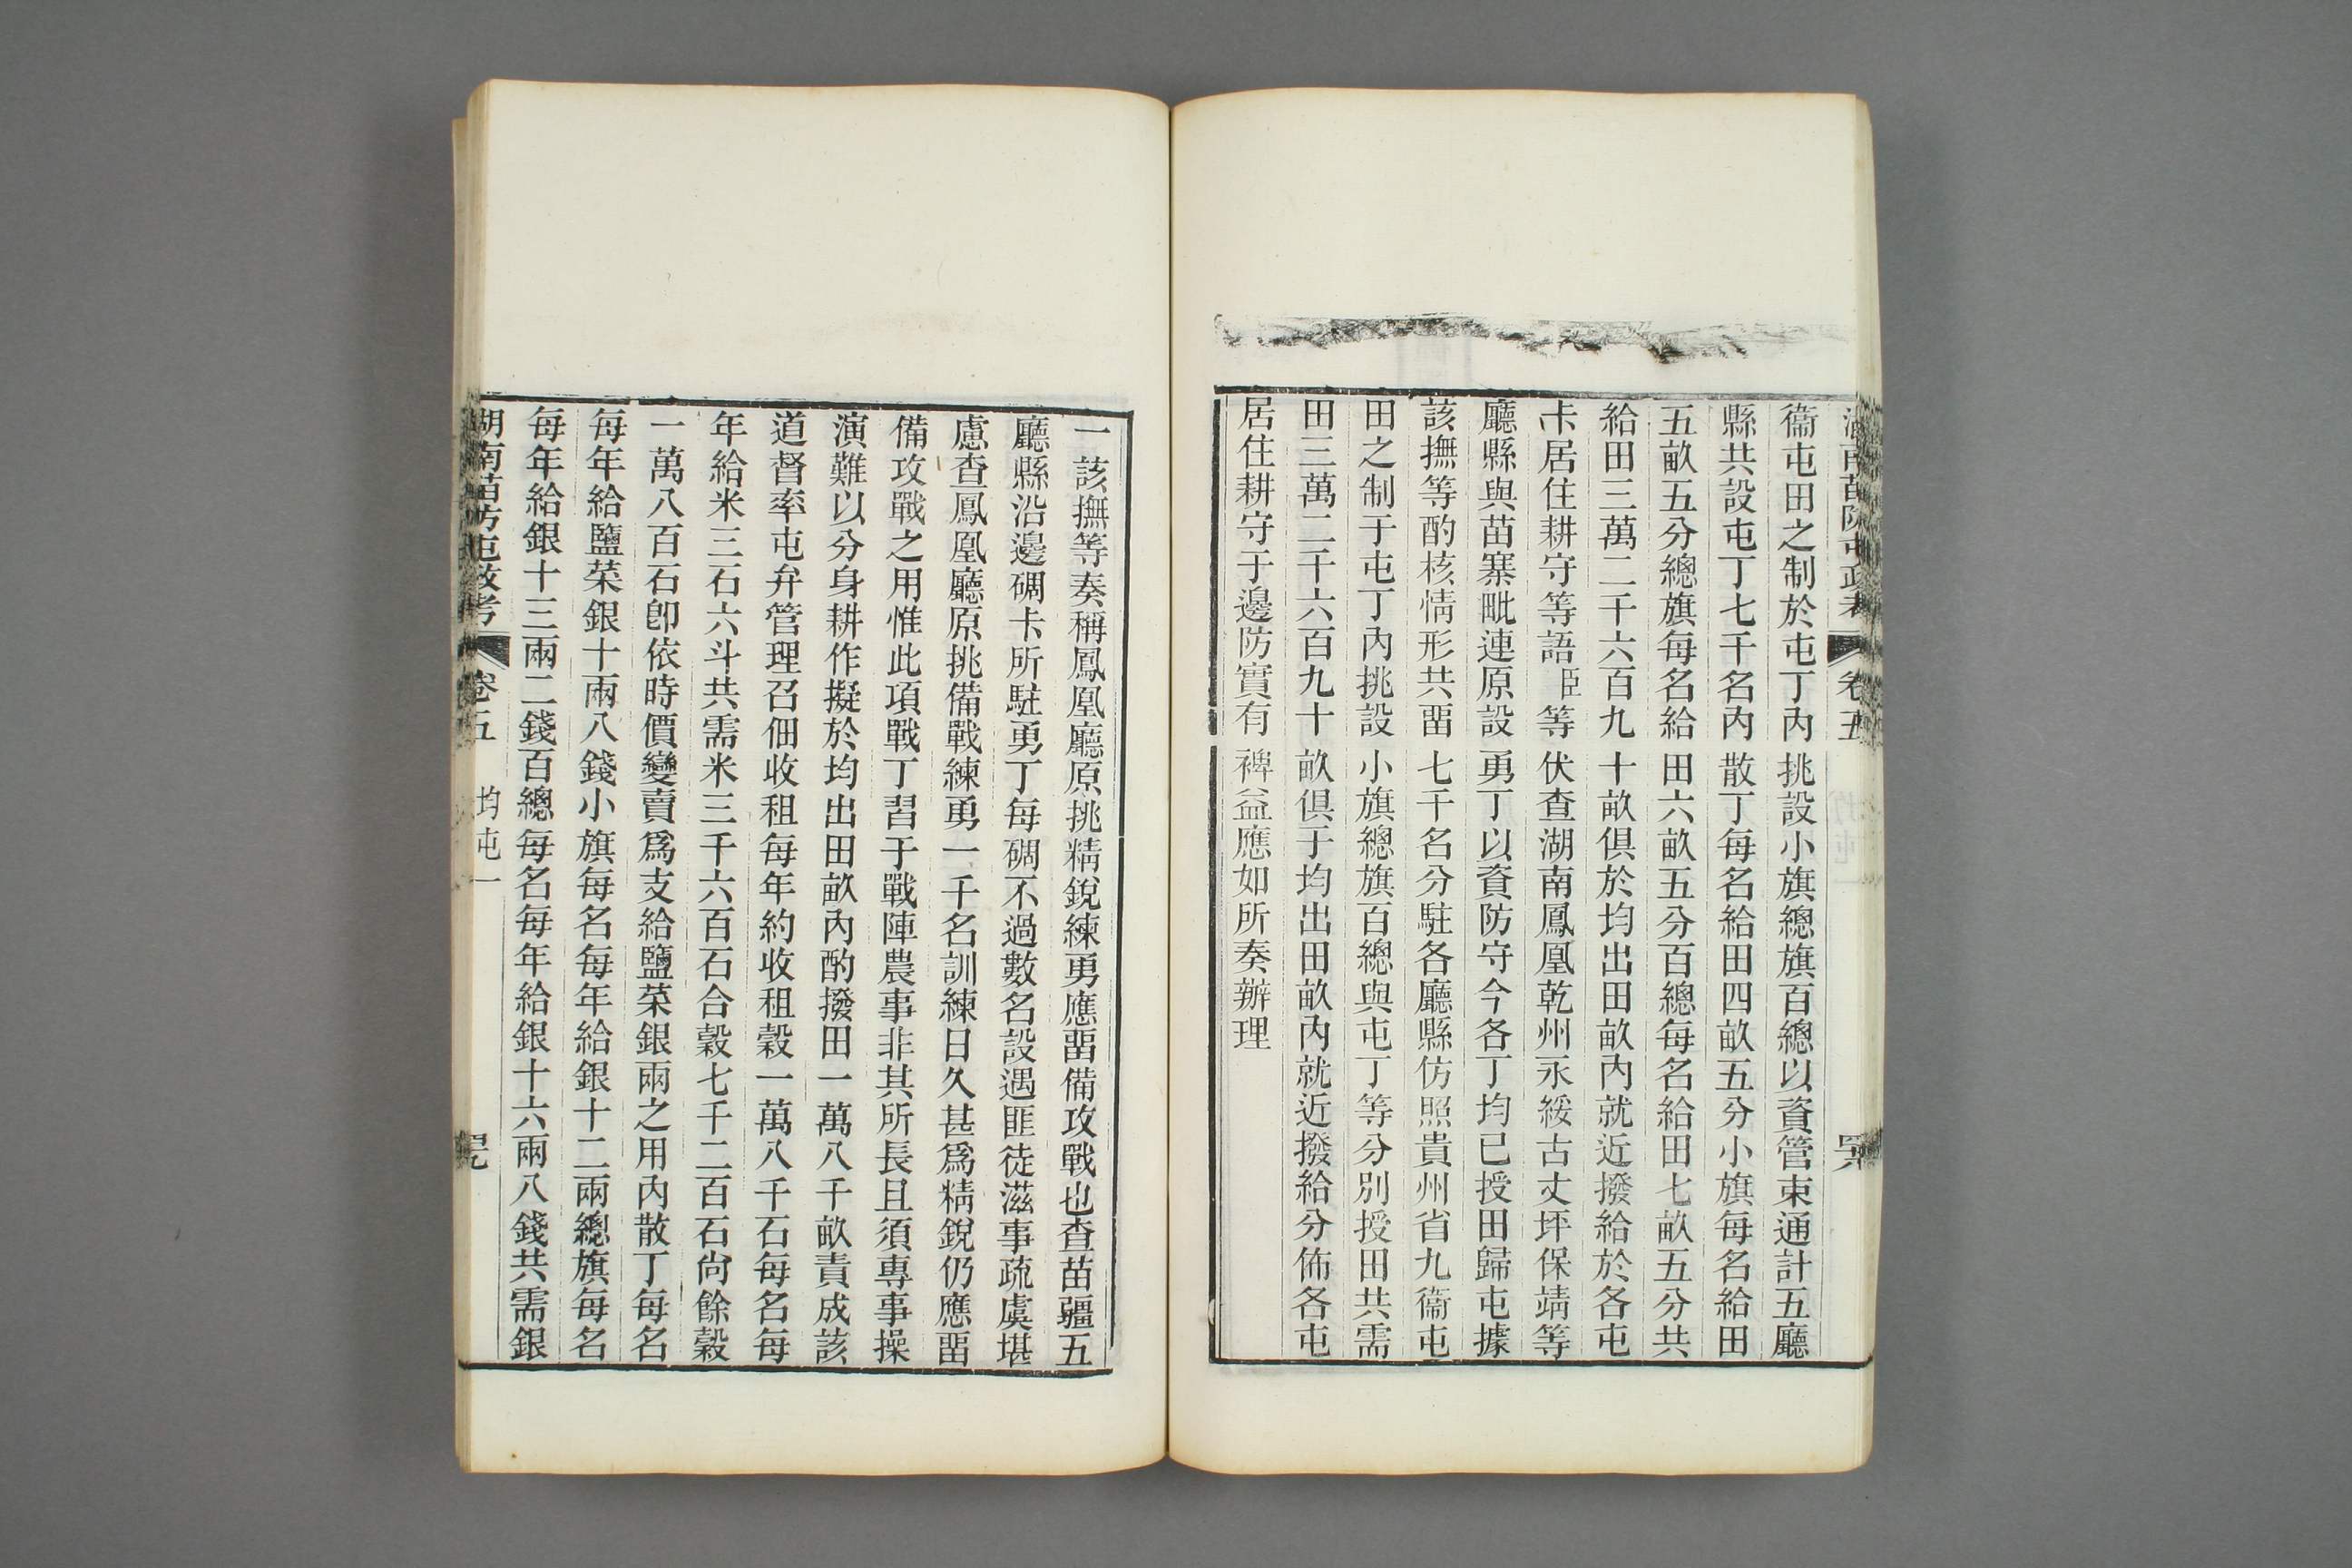 湖南苗防屯政考 卷五
衞屯田之制於屯丁內挑設小旗總旗百總以資管束通計五廳
縣共設屯丁七千名內散丁每名給田四畝五分小旗每名給田
五畝五分總旗每名給田六畝五分百總每名給田七畝五分共
給田三萬二千六百九十畝俱於均出田畝內就近撥給於各屯
卡居住耕守等語臣等伏查湖南鳳凰乾州永綏古丈坪保靖等
廳縣與苗寨毗連原設勇丁以資防守今各丁均已授田歸屯據
該撫等酌核情形共畱七千名分駐各廳縣仿照貴州省九衞屯
田之制于屯丁內挑設小旗總旗百總與屯丁等分別授田共需
田三萬二千六百九十畝俱于均出田畝內就近撥給分佈各屯
居住耕守于邊防實有裨益應如所奏辦理
一該撫等奏稱鳳凰廳原挑精銳練勇應畱備攻戰也查苗疆五
廳縣沿邊碉卡所駐勇丁每碉不過數名設遇匪徒滋事疏虞堪
慮查鳳凰廳原挑備戰練勇一千名訓練日久甚爲精銳仍應畱
備攻戰之用惟此項戰丁習于戰陣農事非其所長且須專事操
演難以分身耕作擬於均出田畝內酌撥田一萬八千畝責成該
道督率屯弁管理召佃收租每年約收租穀一萬八千石每名每
年給米三石六斗共需米三千六百石合穀七千二百石尙餘穀
一萬八百石卽依時價變賣爲支給鹽菜銀兩之用內散丁每名
每年給鹽菜銀十兩八錢小旗每名每年給銀十二兩總旗每名
每年給銀十三兩二錢百總每名每年給銀十六兩八錢共需銀
湖南苗防屯政考 卷五 均屯一